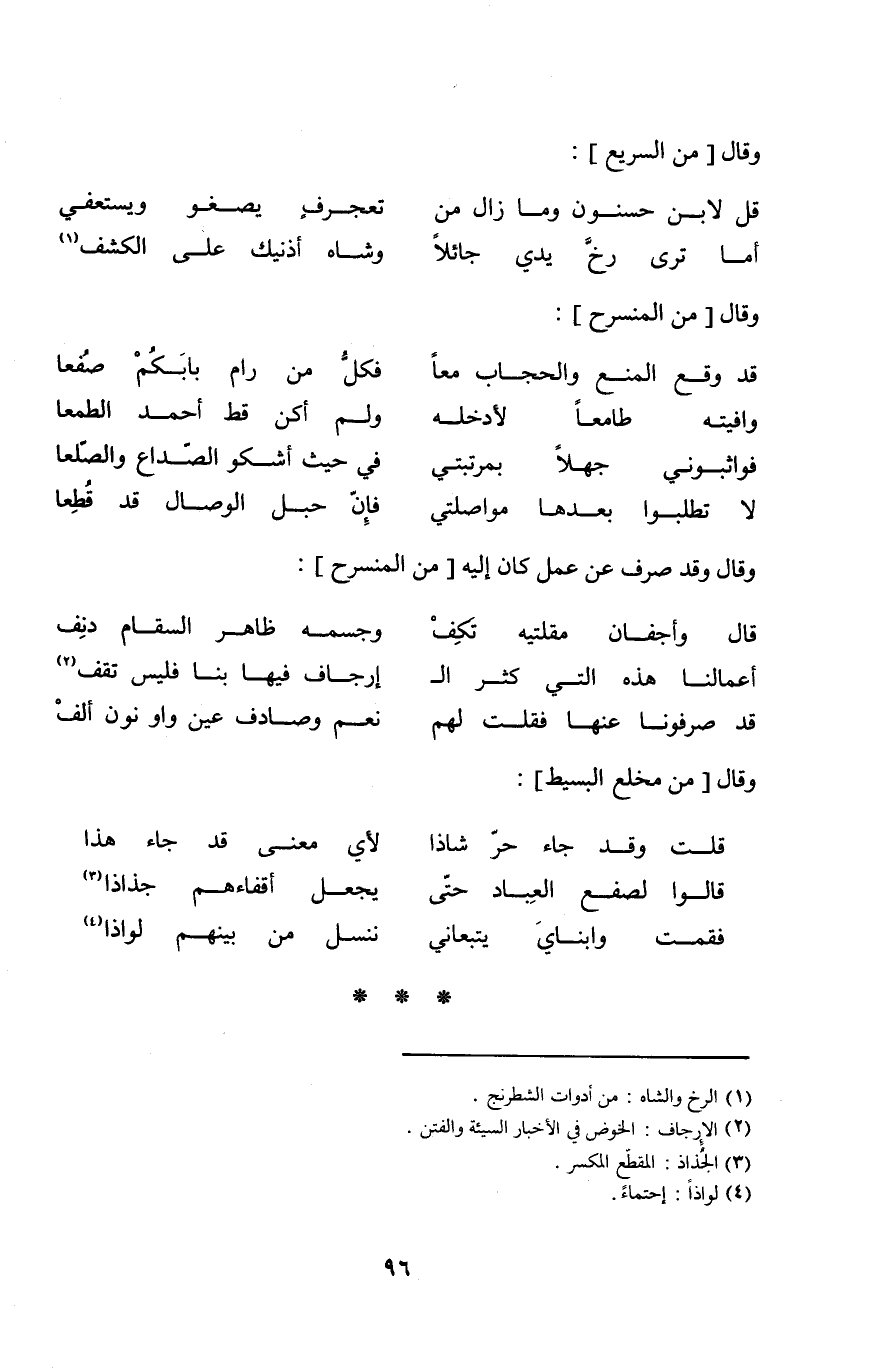 وقال [ من السريع ] :
قل لابن حسنون وما زال من تعجرفٍ يصغو ويستعفي
أما ترى رخَّ يدي جائلاً وشاه أذنيك على الكشف(١)
وقال [ من المنسرح ] :
قد وقع المنع والحجاب معاً فكلُّ من رام بابَكُمْ صُفعا
وافيته طامعاً لأدخله ولم أكن قط أحمد الطمعا
فواثبوني جهلاً بمرتبتي في حيث أشكو الصّداع والصّلعا
لا تطلبوا بعدها مواصلتي فإِنّ حبل الوصال قد قُطِعا
وقال وقد صرف عن عمل كان إليه [ من المنسرح ] :
قال وأجفان مقلتيه تكِفْ وجسمه ظاهر السقام دنِف
أعمالنا هذه التي كثر الـ إرجاف فيها بنا فليس تقف(٢)
قد صرفونا عنها فقلت لهم نعم وصادف عين واو نون ألفْ
وقال [ من مخلع البسيط] :
قلت وقد جاء حرّ شاذا لأي معنى قد جاء هذا
قالوا لصفع العِباد حتّى يجعل أقفاءهم جذاذا(٣)
فقمت وابنايَ يتبعاني ننسل من بينهم لواذا(٤)
* * *
(١) الرخ والشاه : من أدوات الشطرنج .
(٢) الإِرجاف : الخوض في الأخبار السيئة والفتن .
(٣) الجُذاذ : المقطّع المكسر .
(٤) لواذاً : إحتماءً .
٩٦